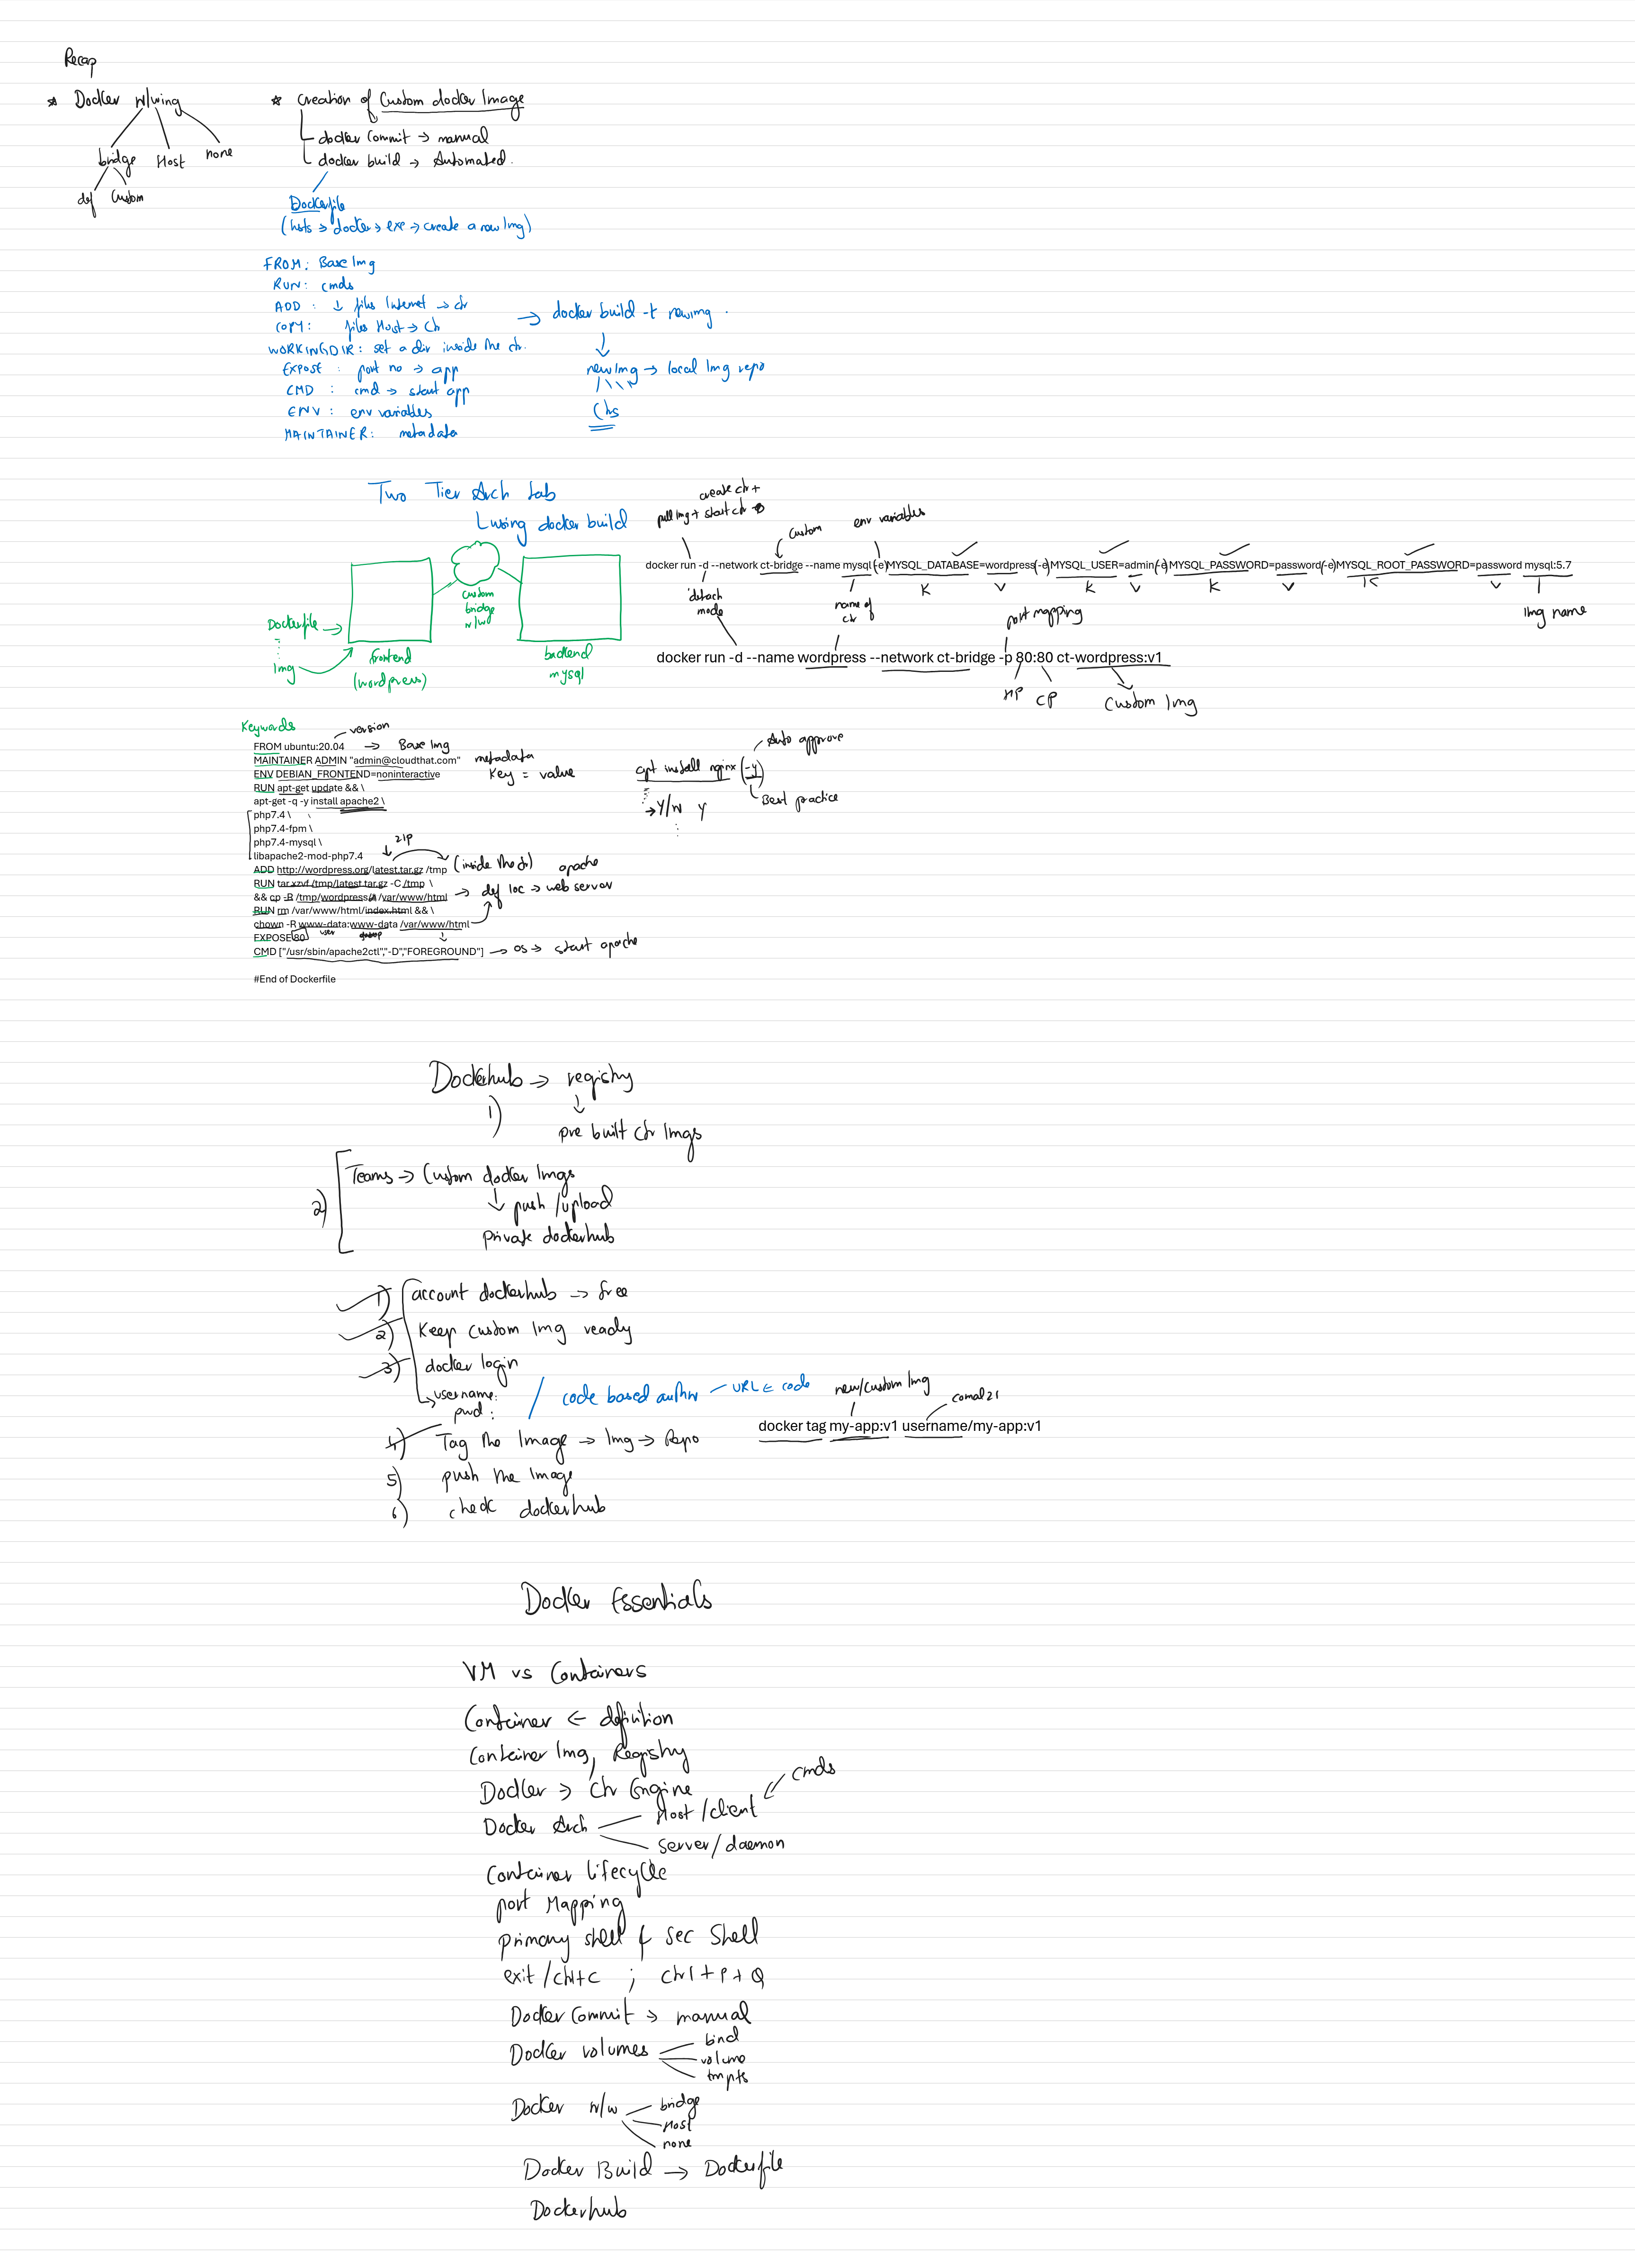 Recap
* Docker n/wing
bridge Host none
def Custom
* Creation of Custom docker Image
docker Commit → manual
docker build → Automated.
Dockerfile
(Insts → docker → exe → create a new Img)
FROM: Base Img
RUN: cmds
ADD : ↓ files Internet → ctr
COPY: files Host → Ctr
WORKINGDIR: set a dir inside the ctr.
EXPOSE : port no → app
CMD : cmd → start app
ENV : env variables
MAINTAINER: metadata
→ docker build -t newimg .
↓
newImg → local Img repo
Ctrs
Two Tier Arch Lab
using docker build
Dockerfile →
Img
frontend
(wordpress)
custom
bridge
n/w
backend
mysql
create ctr +
pull Img + start ctr
custom
env variables
docker run -d --network ct-bridge --name mysql -e MYSQL_DATABASE=wordpress -e MYSQL_USER=admin -e MYSQL_PASSWORD=password -e MYSQL_ROOT_PASSWORD=password mysql:5.7
K V K V K V K V
detach
mode
name of
ctr
Img name
port mapping
docker run -d --name wordpress --network ct-bridge -p 80:80 ct-wordpress:v1
HP CP Custom Img
Keywords
version
FROM ubuntu:20.04 → Base Img
MAINTAINER ADMIN "admin@cloudthat.com" metadata
ENV DEBIAN_FRONTEND=noninteractive Key = value
RUN apt-get update && \
apt-get -q -y install apache2 \
php7.4 \
php7.4-fpm \
php7.4-mysql \
libapache2-mod-php7.4
zip
ADD http://wordpress.org/latest.tar.gz /tmp (inside the ctr) apache
RUN tar xzvf /tmp/latest.tar.gz -C /tmp \
&& cp -R /tmp/wordpress/* /var/www/html → def loc → web server
RUN rm /var/www/html/index.html && \
chown -R www-data:www-data /var/www/html
user group
EXPOSE 80
CMD ["/usr/sbin/apache2ctl","-D","FOREGROUND"] → os → start apache
#End of Dockerfile
Auto approve
apt install nginx (-y)
Best practice
→ Y/N y
Dockerhub → registry
1) ↓
pre built ctr Imgs
2) Teams → Custom docker Imgs
↓ push /upload
private dockerhub
1) account dockerhub → free
2) Keep custom Img ready
3) docker login
username:
pwd :
/ code based authn - URL ← code
4) Tag the Image → Img → Repo
5) push the Image
6) check dockerhub
new/custom Img
comal21
docker tag my-app:v1 username/my-app:v1
Docker Essentials
VM vs Containers
Container ← definition
Container Img, Registry
Docker → Ctr Engine
cmds
Docker Arch Host /client
server/daemon
Container lifecycle
port Mapping
primary shell & Sec Shell
exit /ctrl+c ; ctrl+P+Q
Docker Commit → manual
Docker volumes bind
volume
tmpfs
Docker n/w bridge
Host
none
Docker Build → Dockerfile
Dockerhub